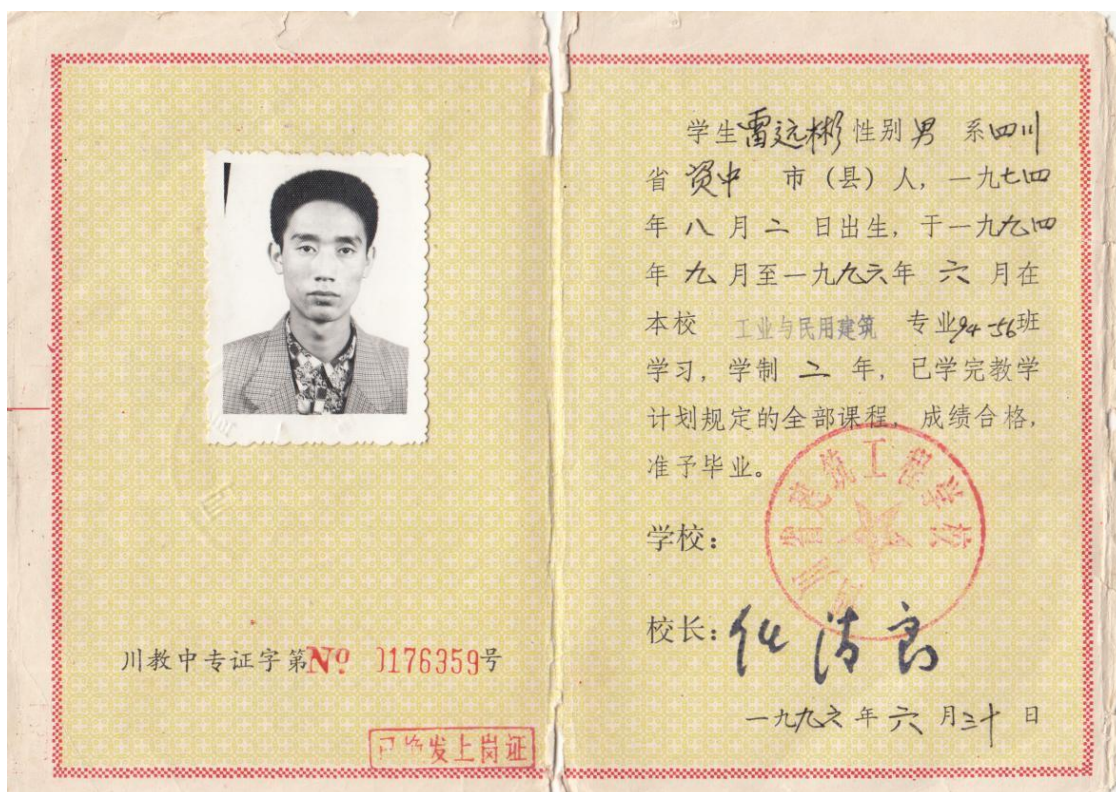 川教中专证字第No 0176359号
已换发上岗证
学生雷远彬性别男 系四川
省 资中 市（县）人，一九七四
年 八 月 二 日出生，于一九九四
年 九 月至一九九六年 六 月在
本校 工业与民用建筑 专业94-56班
学习，学制 二 年，已学完教学
计划规定的全部课程，成绩合格，
准予毕业。
四川省建筑工程学校
学校：
校长：
一九九六年 六 月三十 日